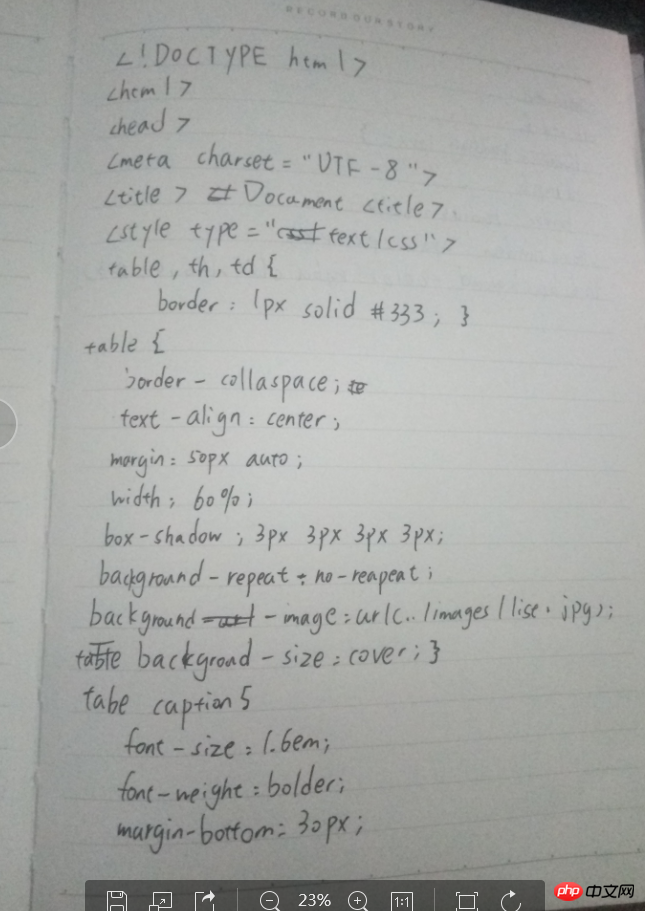 RECORD OUR STORY
<!DOCTYPE heml>
<heml>
<head>
<meta charset="UTF-8">
<title> Document <title>
<style type="text/css">
table, th, td {
border: 1px solid #333; }
table {
border-collaspace;
text-align: center;
margin: 50px auto;
width: 60%;
box-shadow; 3px 3px 3px 3px;
background-repeat: no-reapeat;
background-image: url(../images/lise.jpg);
backgroad-size: cover; }
tabe caption {
font-size: 1.6em;
font-weight: bolder;
margin-bottom: 30px;
23% 1:1
php 中文网